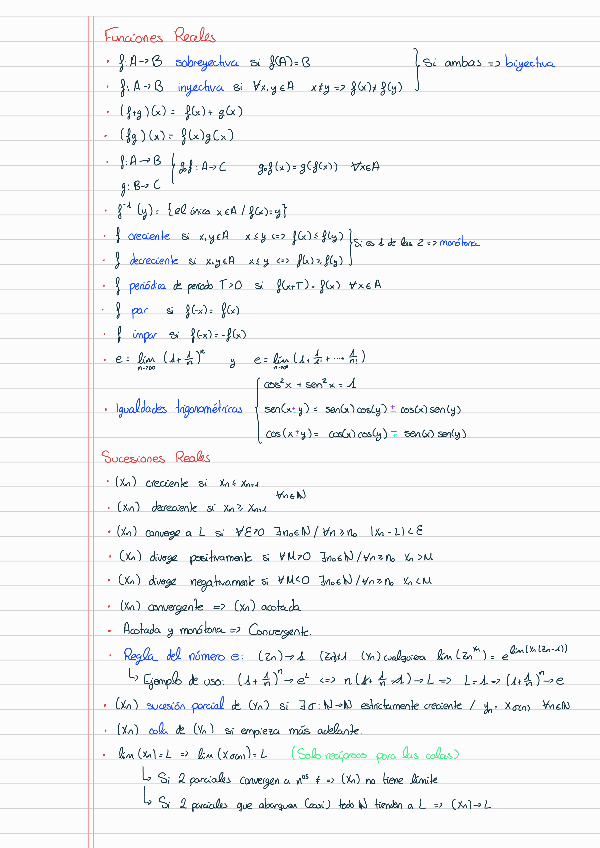 Funciones Reales
· f: A → B sobreyectiva si f(A) = B
· f: A → B inyectiva si ∀x,y ∈ A x ≠ y => f(x) ≠ f(y)
Si ambas => biyectiva
· (f+g)(x) = f(x) + g(x)
· (fg)(x) = f(x)g(x)
· f: A → B
g: B → C
g∘f: A → C g∘f(x) = g(f(x)) ∀x ∈ A
· f⁻¹(y) = {el único x ∈ A / f(x) = y}
· f creciente si x,y ∈ A x ≤ y <=> f(x) ≤ f(y)
· f decreciente si x,y ∈ A x ≤ y <=> f(x) ≥ f(y)
Si es 1 de las 2 => monótona
· f periódica de periodo T > 0 si f(x+T) = f(x) ∀x ∈ A
· f par si f(-x) = f(x)
· f impar si f(-x) = -f(x)
· e = lim n→∞ (1 + 1/n)ⁿ y e = lim n→∞ (1 + 1/1! + ... + 1/n!)
cos²x + sen²x = 1
· Igualdades trigonométricas sen(x±y) = sen(x)cos(y) ± cos(x)sen(y)
cos(x±y) = cos(x)cos(y) ∓ sen(x)sen(y)
Sucesiones Reales
· (xₙ) creciente si xₙ ≤ xₙ₊₁
∀n ∈ ℕ
· (xₙ) decreciente si xₙ ≥ xₙ₊₁
· (xₙ) converge a L si ∀ε>0 ∃n₀∈ℕ / ∀n ≥ n₀ |xₙ - L| < ε
· (xₙ) diverge positivamente si ∀M>0 ∃n₀∈ℕ / ∀n ≥ n₀ xₙ > M
· (xₙ) diverge negativamente si ∀M<0 ∃n₀∈ℕ / ∀n ≥ n₀ xₙ < M
· (xₙ) convergente => (xₙ) acotada
· Acotada y monótona => Convergente.
· Regla del número e: (zₙ) → 1 (zₙ) ≠ 1 (xₙ) cualquiera lim (zₙ^xₙ) = e^lim(xₙ(zₙ-1))
↳ Ejemplo de uso: (1 + 1/n)ⁿ → e^L <=> n(1 + 1/n - 1) → L => L = 1 => (1 + 1/n)ⁿ → e
· (xₙ) sucesión parcial de (yₙ) si ∃σ: ℕ → ℕ estrictamente creciente / yₙ = x_σ(n) ∀n ∈ ℕ
· (xₙ) cola de (yₙ) si empieza más adelante.
· lim (xₙ) = L => lim (x_σ(n)) = L (Solo recíproco para las colas)
↳ Si 2 parciales convergen a nºs ≠ => (xₙ) no tiene límite
↳ Si 2 parciales que abarquen (casi) todo ℕ tienden a L => (xₙ) → L